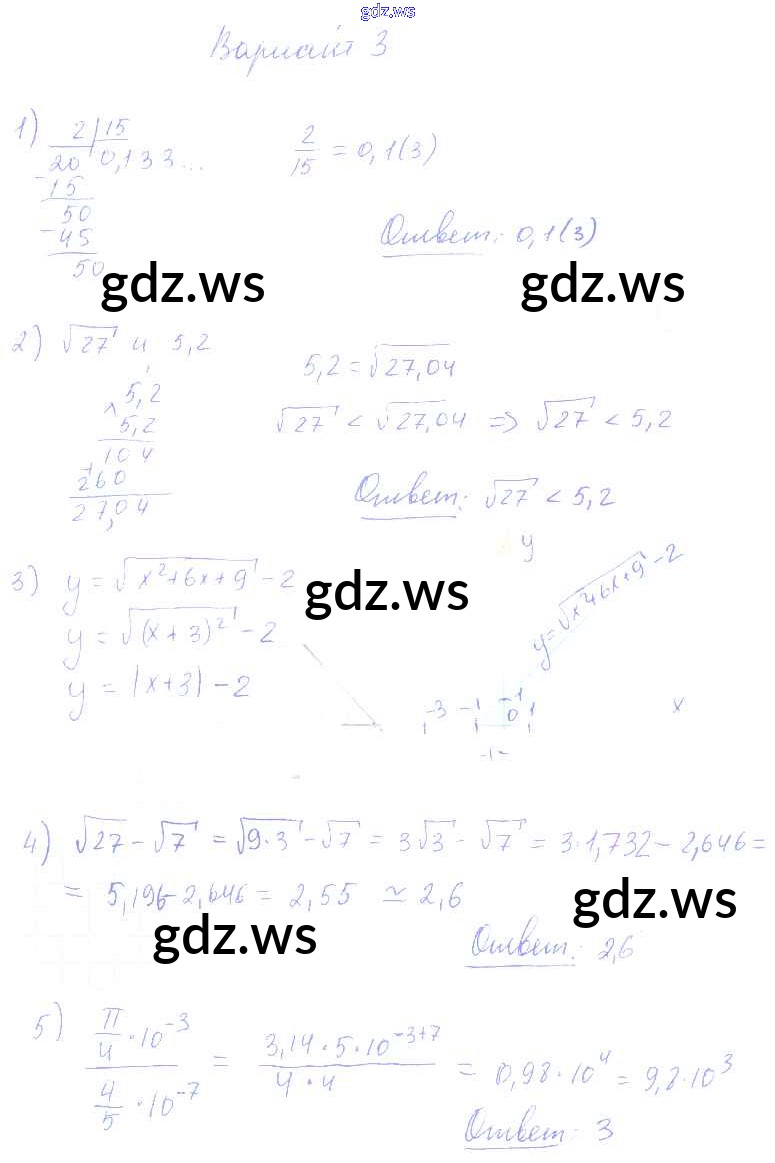 gdz.ws
Вариант 3
1) 2 | 15
20 0,133...
- 15
50
- 45
50
2/15 = 0,1(3)
Ответ: 0,1(3)
gdz.ws gdz.ws
2) √27 и 5,2
× 5,2
5,2
104
260
27,04
5,2 = √27,04
√27 < √27,04 => √27 < 5,2
Ответ: √27 < 5,2
3) y = √(x²+6x+9) - 2
y = √((x+3)²) - 2
y = |x+3| - 2
gdz.ws
y
y = √(x²+6x+9) - 2
-3 -1 0 1
-1
x
4) √27 - √7 = √(9·3) - √7 = 3√3 - √7 = 3·1,732 - 2,646 =
= 5,196 - 2,646 = 2,55 ≃ 2,6
gdz.ws gdz.ws
Ответ: 2,6
5) (π/4 · 10⁻³)/(4/5 · 10⁻⁷) = (3,14 · 5 · 10⁻³⁺⁷)/(4 · 4) = 0,98 · 10⁴ = 9,8 · 10³
Ответ: 3